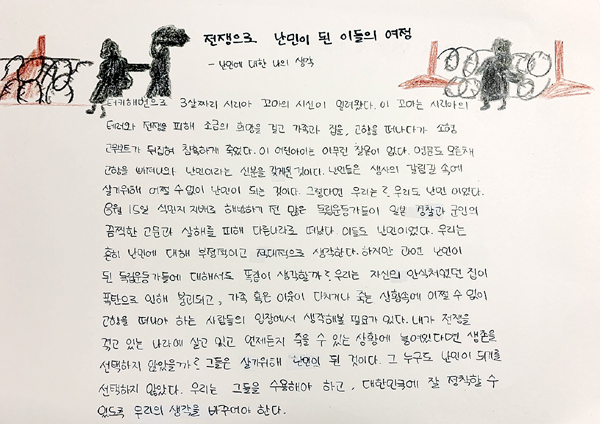 전쟁으로 난민이 된 이들의 여정
- 난민에 대한 나의 생각
터키해변으로 3살짜리 시리아 꼬마의 시신이 밀려왔다. 이 꼬마는 시리아의
테러와 전쟁을 피해 소금의 희망을 갖고 가족과 집을, 고향을 떠나다가 소형
고무보트가 뒤집혀 참혹하게 죽었다. 이 어린아이는 아무런 잘못이 없다. 영문도 모른채
고향을 빠져나와 난민이라는 신분을 갖게된 것이다. 난민들은 생사의 갈림길 속에
살기위해 어쩔 수 없이 난민이 되는 것이다. 그렇다면 우리는? 우리도 난민 이었다.
8월 15일 식민지 지배로 해방하기 전 많은 독립운동가들이 일본 경찰과 군인의
끔찍한 고문과 살해를 피해 다른나라로 떠났다. 이들도 난민이었다. 우리는
흔히 난민에 대해 부정적이고 적대적으로 생각한다. 하지만 과연 난민이
된 독립운동가들에 대해서도 똑같이 생각할까? 우리는 자신의 안식처였던 집이
폭탄으로 인해 붕괴되고, 가족 혹은 이웃이 다치거나 죽는 상황속에 어쩔 수 없이
고향을 떠나야 하는 사람들의 입장에서 생각해볼 필요가 있다. 내가 전쟁을
겪고 있는 나라에 살고 있고 언제든지 죽을 수 있는 상황에 놓여있다면 생존을
선택하지 않았을까? 그들은 살기위해 난민이 된 것이다. 그 누구도 난민이 되기를
선택하지 않았다. 우리는 그들을 수용해야 하고, 대한민국에 잘 정착할 수
있도록 우리의 생각을 바꾸어야 한다.